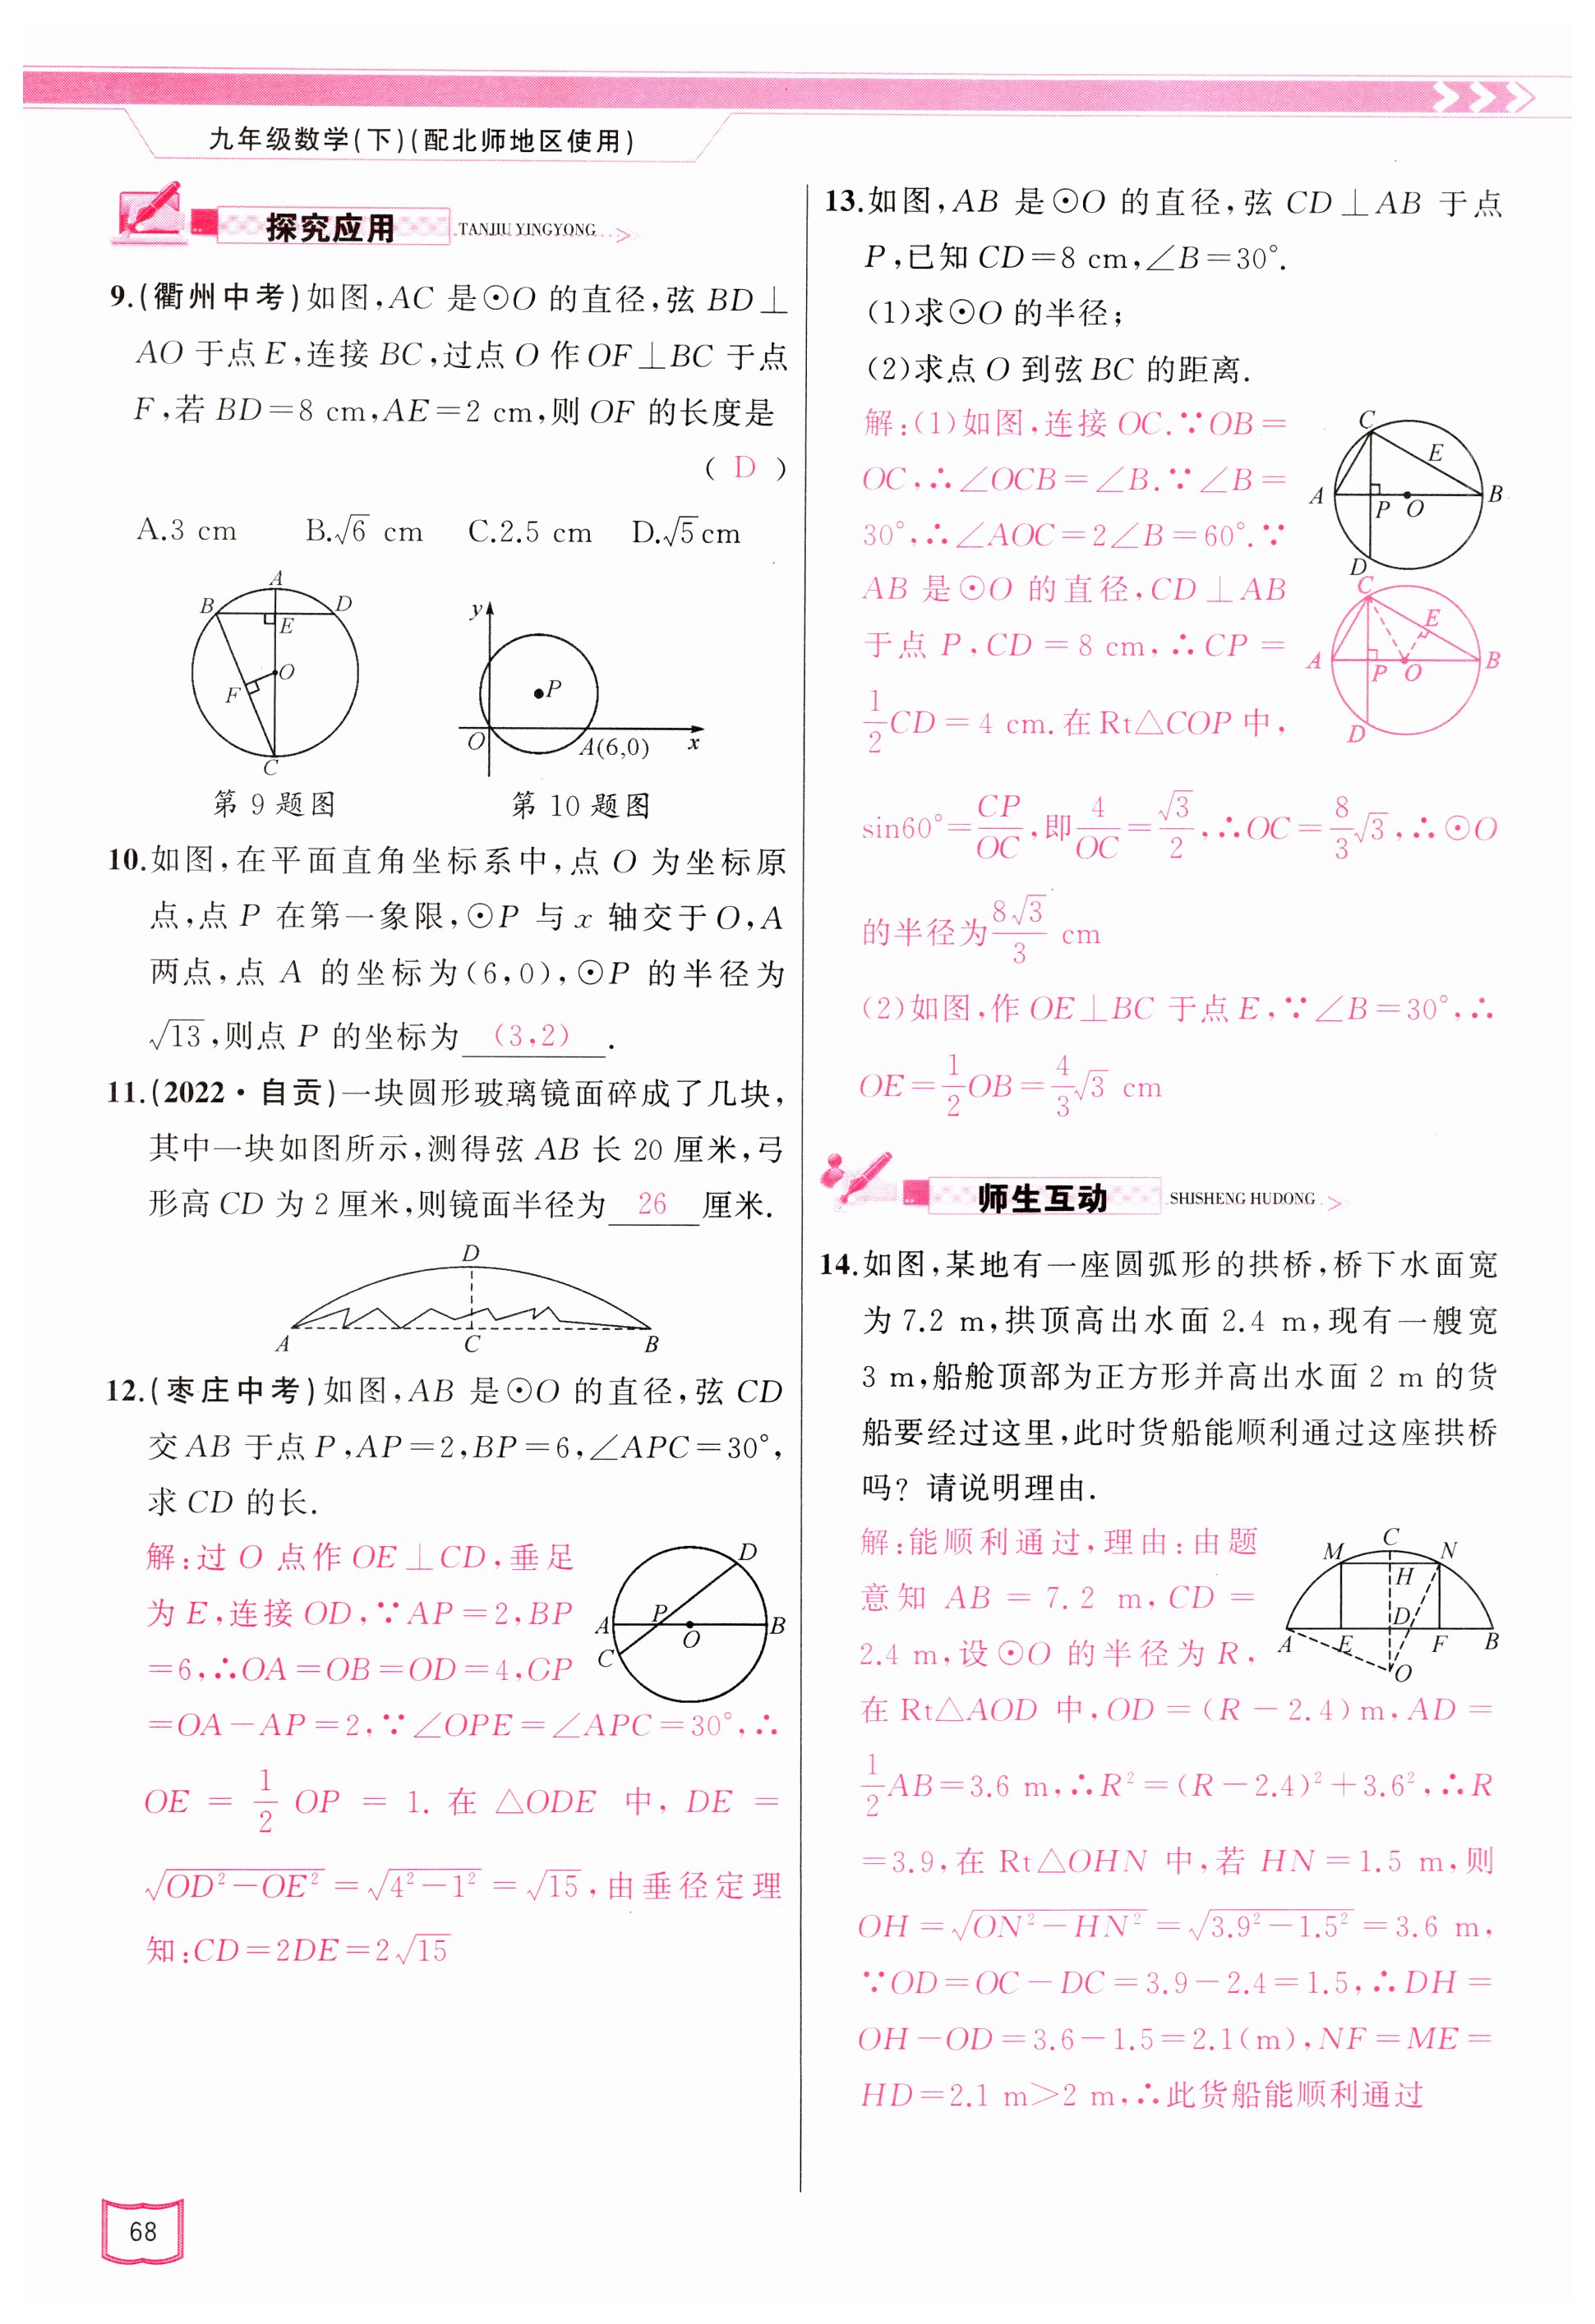 九年级数学(下)(配北师地区使用)
探究应用 TANJIU YINGYONG
9.(衢州中考)如图,AC 是⊙O 的直径,弦 BD⊥
AO 于点 E,连接 BC,过点 O 作 OF⊥BC 于点
F,若 BD=8 cm,AE=2 cm,则 OF 的长度是
( D )
A.3 cm B.√6 cm C.2.5 cm D.√5 cm
A
B
D
E
O
F
C
第 9 题图
y
P
O
A(6,0)
x
第 10 题图
10.如图,在平面直角坐标系中,点 O 为坐标原
点,点 P 在第一象限,⊙P 与 x 轴交于 O,A
两点,点 A 的坐标为(6,0),⊙P 的半径为
√13,则点 P 的坐标为 (3,2) .
11.(2022·自贡)一块圆形玻璃镜面碎成了几块,
其中一块如图所示,测得弦 AB 长 20 厘米,弓
形高 CD 为 2 厘米,则镜面半径为 26 厘米.
D
A
C
B
12.(枣庄中考)如图,AB 是⊙O 的直径,弦 CD
交 AB 于点 P,AP=2,BP=6,∠APC=30°,
求 CD 的长.
解:过 O 点作 OE⊥CD,垂足
为 E,连接 OD,∵AP=2,BP
=6,∴OA=OB=OD=4,OP
=OA-AP=2,∵∠OPE=∠APC=30°,∴
OE = 1/2 OP = 1. 在 △ODE 中, DE =
√(OD²-OE²) = √(4²-1²) = √15,由垂径定理
知:CD=2DE=2√15
D
A
P
O
B
C
13.如图,AB 是⊙O 的直径,弦 CD⊥AB 于点
P,已知 CD=8 cm,∠B=30°.
(1)求⊙O 的半径;
(2)求点 O 到弦 BC 的距离.
解:(1)如图,连接 OC.∵OB=
OC,∴∠OCB=∠B.∵∠B=
30°,∴∠AOC=2∠B=60°.∵
AB 是⊙O 的直径,CD⊥AB
于点 P,CD=8 cm,∴CP=
1/2 CD=4 cm.在 Rt△COP 中,
sin60°=CP/OC,即 4/OC=√3/2,∴OC=8/3√3,∴⊙O
的半径为 8√3/3 cm
(2)如图,作 OE⊥BC 于点 E,∵∠B=30°,∴
OE=1/2 OB=4/3√3 cm
C
E
A
P
O
B
D
C
E
A
P
O
B
D
师生互动 SHISHENG HUDONG
14.如图,某地有一座圆弧形的拱桥,桥下水面宽
为 7.2 m,拱顶高出水面 2.4 m,现有一艘宽
3 m,船舱顶部为正方形并高出水面 2 m 的货
船要经过这里,此时货船能顺利通过这座拱桥
吗? 请说明理由.
解:能顺利通过,理由:由题
意知 AB = 7.2 m,CD =
2.4 m,设⊙O 的半径为 R,
在 Rt△AOD 中,OD=(R-2.4)m,AD=
1/2 AB=3.6 m,∴R²=(R-2.4)²+3.6²,∴R
=3.9,在 Rt△OHN 中,若 HN=1.5 m,则
OH=√(ON²-HN²)=√(3.9²-1.5²)=3.6 m,
∵OD=OC-DC=3.9-2.4=1.5,∴DH=
OH-OD=3.6-1.5=2.1(m),NF=ME=
HD=2.1 m>2 m,∴此货船能顺利通过
C
M
N
H
D
A
E
F
B
O
68